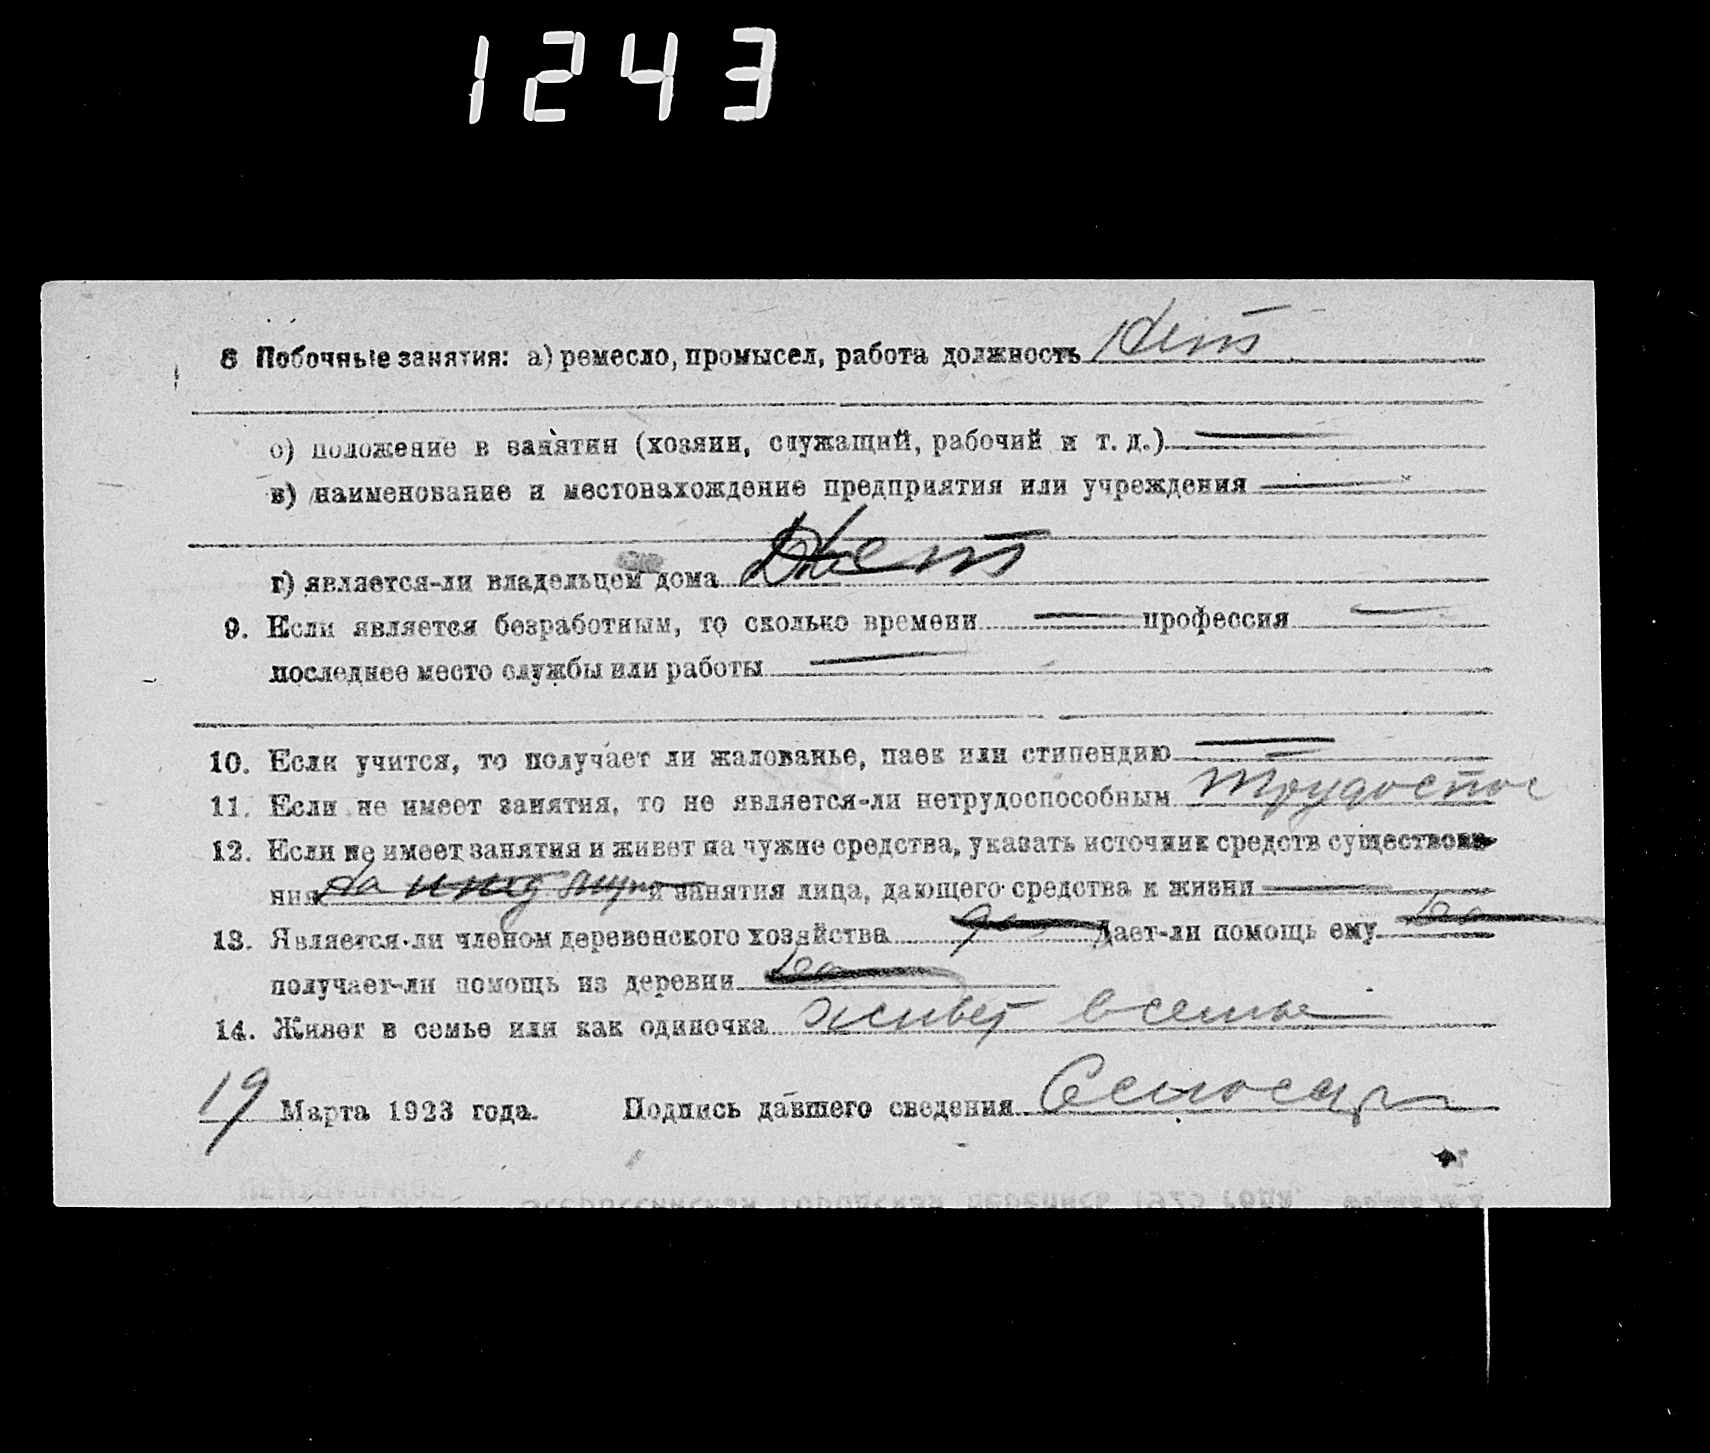 1243
8 Побочные занятия: а) ремесло, промысел, работа должность Нет
о) положение в занятии (хозяин, служащий, рабочий и т. д.)
в) наименование и местонахождение предприятия или учреждения
г) является-ли владельцем дома Нет
9. Если является безработным, то сколько времени профессия
последнее место службы или работы
10. Если учится, то получает ли жалованье, паек или стипендию
11. Если не имеет занятия, то не является-ли нетрудоспособным трудоспос
12. Если не имеет занятия и живет на чужие средства, указать источник средств существова-
ния и занятия лица, дающего средства к жизни
13. Является-ли членом деревенского хозяйства Дает-ли помощь ему
получает-ли помощь из деревни
14. Живет в семье или как одиночка живет в семье
19 Марта 1923 года. Подпись давшего сведения